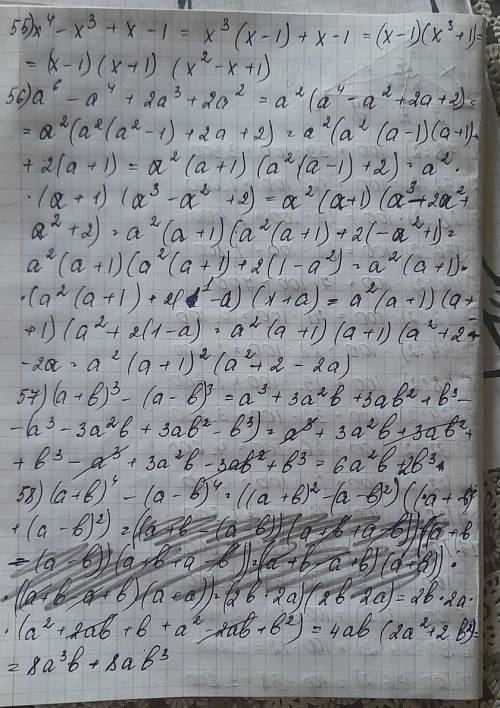 55) x⁴ - x³ + x - 1 = x³ (x-1) + x - 1 = (x-1)(x³+1)=
= (x-1) (x+1) (x² - x + 1)
56) a⁶ - a⁴ + 2a³ + 2a² = a² (a⁴ - a² + 2a + 2) =
= a² (a² (a² - 1) + 2a + 2) = a² (a² (a-1)(a+1)+
+ 2(a+1) = a² (a+1) (a² (a-1) + 2) = a² ·
· (a+1) (a³ - a² + 2) = a² (a+1) (a³ + 2a² +
a² + 2) = a² (a+1) (a² (a+1) + 2 (-a² + 1) =
a² (a+1) (a² (a+1) + 2 (1 - a²) = a² (a+1) ·
· (a² (a+1) + 2(1-a) (x+a) = a² (a+1) (a+
+1) (a² + 2(1-a) = a² (a+1) (a+1) (a² + 2 -
-2a = a² (a+1)² (a² + 2 - 2a)
57) (a+b)³ - (a-b)³ = a³ + 3a²b + 3ab² + b³ -
- a³ - 3a²b + 3ab² - b³) = a³ + 3a²b + 3ab² +
+ b³ - a³ + 3a²b - 3ab² + b³ = 6a²b + 2b³
58) (a+b)⁴ - (a-b)⁴ = ((a+b)² - (a-b)²) ((a+b)²
+ (a-b)²) =
= (2b · 2a) (2b 2a) = 2b · 2a ·
· (a² + 2ab + b + a² - 2ab + b²) = 4ab (2a² + 2b²) =
= 8a³b + 8ab³